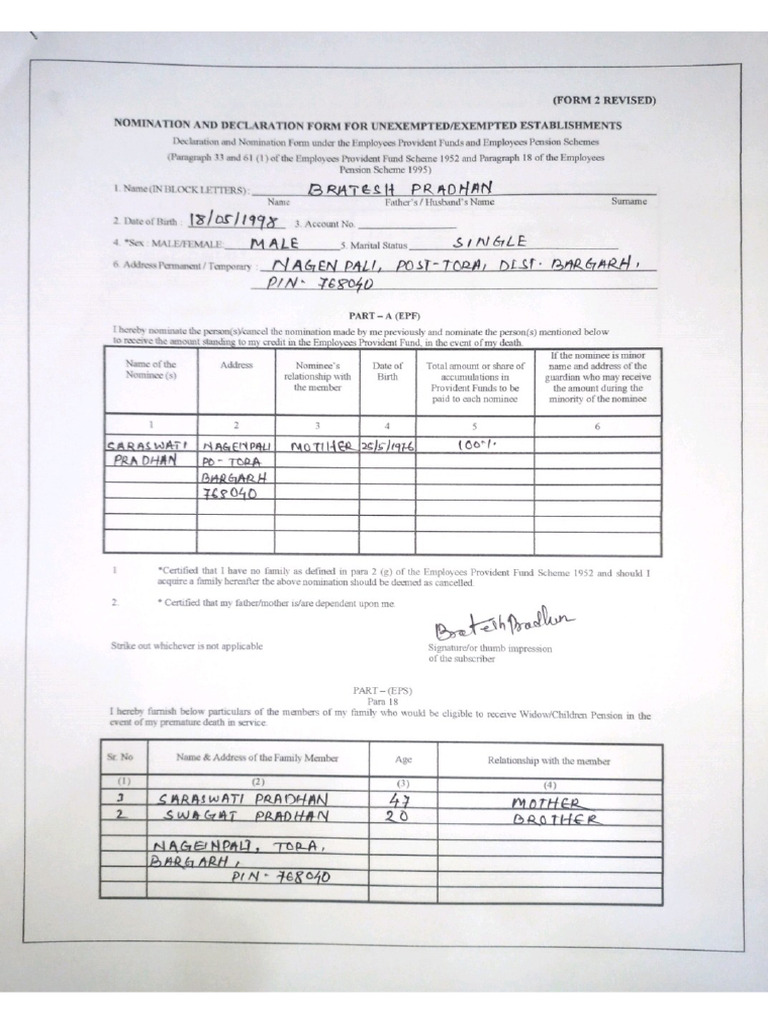 (FORM 2 REVISED)
NOMINATION AND DECLARATION FORM FOR UNEXEMPTED/EXEMPTED ESTABLISHMENTS
Declaration and Nomination Form under the Employees Provident Funds and Employees Pension Schemes
(Paragraph 33 and 61 (1) of the Employees Provident Fund Scheme 1952 and Paragraph 18 of the Employees
Pension Scheme 1995)
1. Name (IN BLOCK LETTERS) : BRATESH PRADHAN
Name Father's / Husband's Name Surname
2. Date of Birth : 18/05/1998 3. Account No.
4. *Sex : MALE/FEMALE: MALE 5. Marital Status SINGLE
6. Address Permanent / Temporary : NAGEN PALI, POST-TORA, DIST. BARGARH,
PIN- 768040
PART – A (EPF)
I hereby nominate the person(s)/cancel the nomination made by me previously and nominate the person(s) mentioned below
to receive the amount standing to my credit in the Employees Provident Fund, in the event of my death.
Name of the Nominee (s) Address Nominee's relationship with the member Date of Birth Total amount or share of accumulations in Provident Funds to be paid to each nominee If the nominee is minor name and address of the guardian who may receive the amount during the minority of the nominee
1 2 3 4 5 6
SARASWATI NAGENPALI MOTHER 25/5/1976 100%
PRADHAN PO - TORA
BARGARH
768040
1 *Certified that I have no family as defined in para 2 (g) of the Employees Provident Fund Scheme 1952 and should I
acquire a family hereafter the above nomination should be deemed as cancelled.
2. * Certified that my father/mother is/are dependent upon me.
Bratesh Pradhan
Strike out whichever is not applicable Signature/or thumb impression
of the subscriber
PART – (EPS)
Para 18
I hereby furnish below particulars of the members of my family who would be eligible to receive Widow/Children Pension in the
event of my premature death in service.
Sr. No Name & Address of the Family Member Age Relationship with the member
(1) (2) (3) (4)
SARASWATI PRADHAN 47 MOTHER
2 SWAGAT PRADHAN 20 BROTHER
NAGENPALI, TORA,
BARGARH,
PIN- 768040